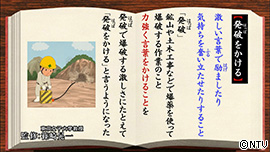 【発破をかける】
激しい言葉で励ましたり
気持ちを奮い立たせたりすること
「発破」
鉱山や土木工事などで爆薬を使って
爆破する作業のこと
力強く言葉をかけることを
発破で爆破する激しさにたとえて
「発破をかける」と言うようになった
©NTV